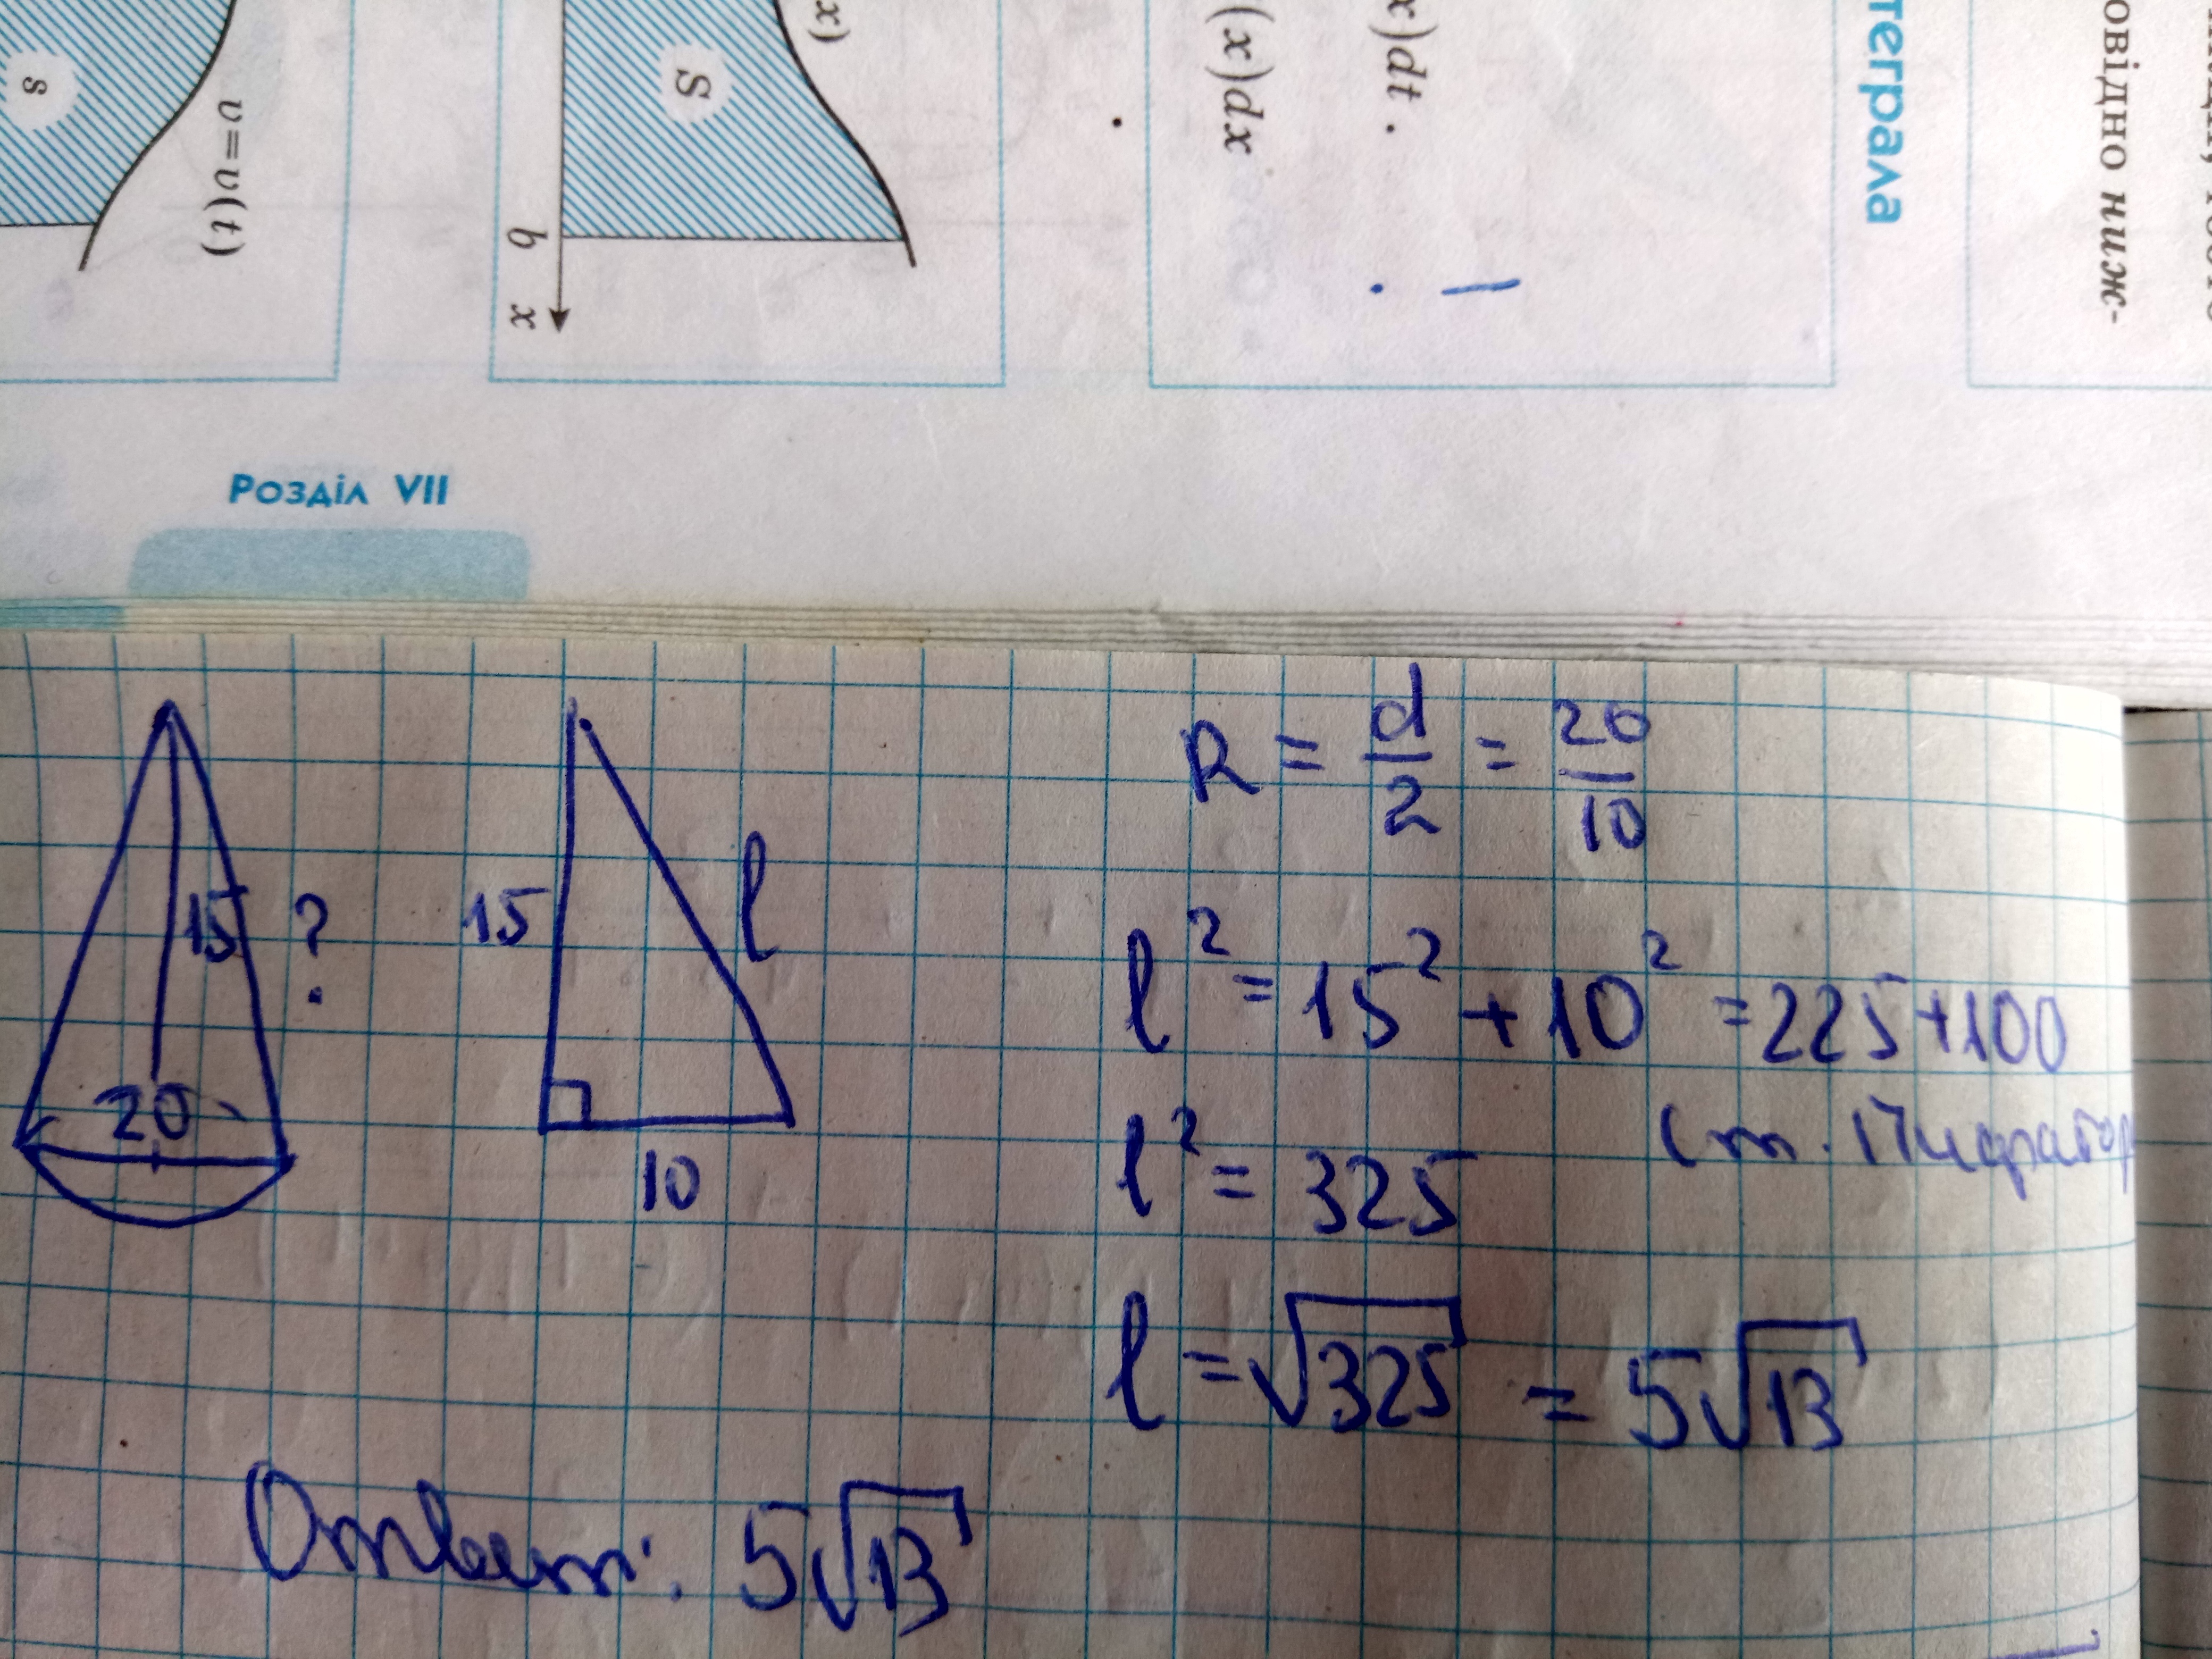 s
v=v(t)
S
b
x
x)
(x)dx
x)dt.
теграла
овідно ниж-
Розділ VII
15
?
20
15
l
10
R = d/2 = 20/10
l² = 15² + 10² = 225+100
(т.
l² = 325
l = √325 = 5√13
Ответ: 5√13